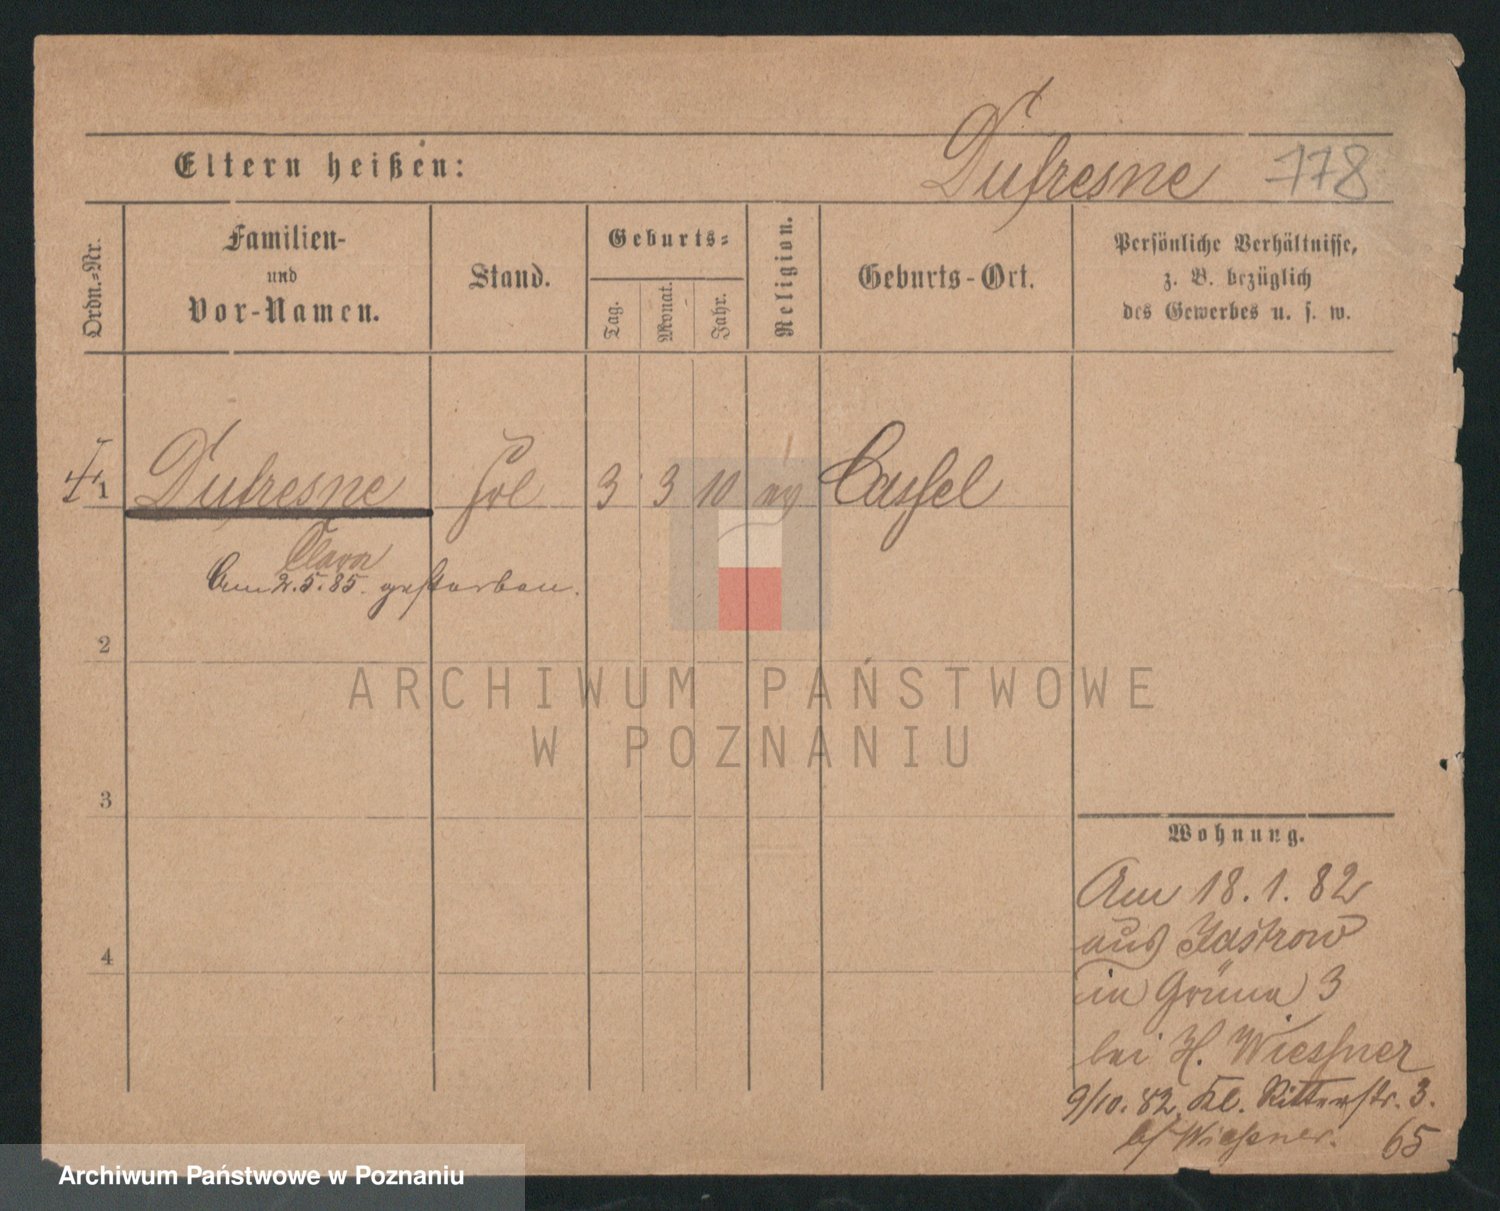 Dufresne 178
Eltern heißen:
Ordn.-Nr.
Familien-
und
Vor-Namen.
Stand.
Geburts-
Tag.
Monat.
Jahr.
Religion.
Geburts-Ort.
Persönliche Verhältnisse,
z. B. bezüglich
des Gewerbes u. s. w.
1 Dufresne Frl 3 3 10 Cassel
Clara
Am 2.5.85. gestorben.
2
3
4
Wohnung.
Am 18.1.82
aus Jastrow
in Grüna 3
bei H. Wiessner
9/10.82. Kl. Ritterstr. 3.
b/ Wießner. 65
ARCHIWUM PAŃSTWOWE
W POZNANIU
Archiwum Państwowe w Poznaniu